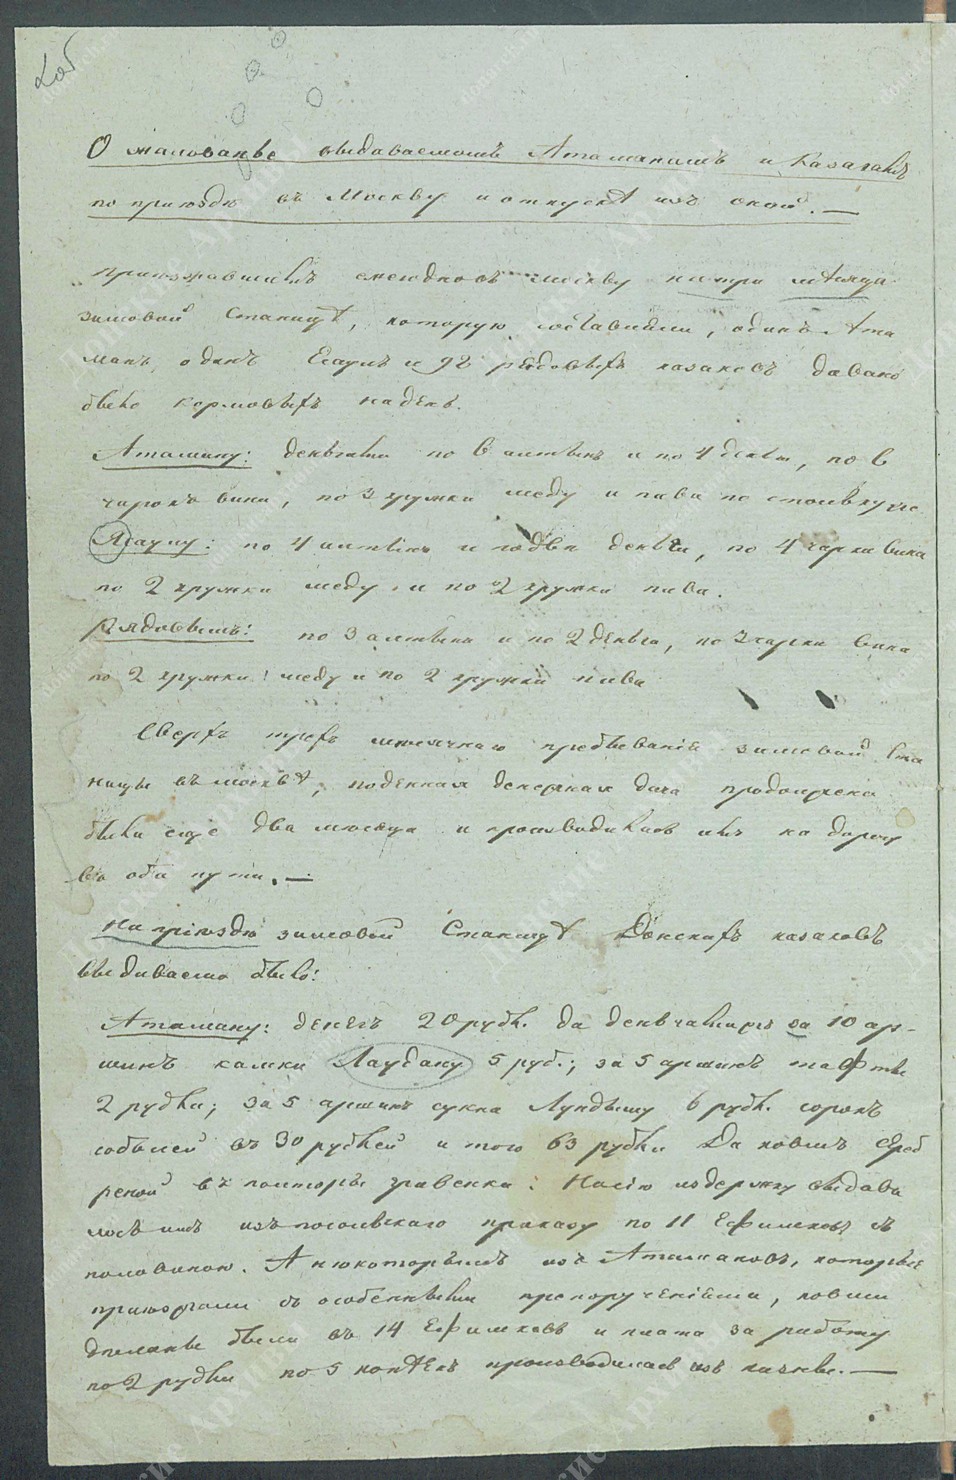 О жалованье выдаваемомъ Атаманамъ и Казакамъ
по приѣздѣ въ Москву и отпускѣ изъ оной. —
Приѣзжавшимъ ежегодно въ Москву на три мѣсяца
зимовой Станицѣ, которую составляли, одинъ Ата
манъ, одинъ Есаулъ и 92 рядовыхъ казаковъ давано
было кормовыхъ на день.
Атаману: деньгами по 6 алтынъ и по 4 деньги, по 6
чарокъ вина, по 3 кружки меду и пива по стольку же
Ясаулу: по 4 алтына и по двѣ деньги, по 4 чарки вина
по 2 кружки меду, и по 2 кружки пива.
Рядовымъ: по 3 алтына и по 2 деньги, по 3 чарки вина
по 2 кружки меду и по 2 кружки пива
Сверхъ трехъ мѣсячнаго пребыванія зимовой Ста
ницы въ Москвѣ, поденная денежная дача продолжена
была еще два мѣсяца и производилась имъ на дорогу
въ оба пути. —
На приѣздѣ зимовой Станицѣ Донскихъ казаковъ
выдаваемо было:
Атаману: денегъ 20 рубл. да деньгами за 10 ар-
шинъ камки Лаудану 5 руб.; за 5 аршинъ тафты
2 рубли; за 5 аршинъ сукна Лундышу 6 рубл. сорокъ
соболей въ 30 рублей и того 63 рубли Да ковшъ сереб
реной въ полторы гривенки: На сію издержку выдава
лось имъ изъ посольскаго приказу по 11 Ефимковъ съ
половиною. А нѣкоторымъ изъ Атамановъ, которые
приѣзжали съ особенными препорученіями, ковши
дѣланы были въ 14 Ефимковъ и плата за работу
по 2 рубли по 5 копѣекъ производилась изъ казны. —